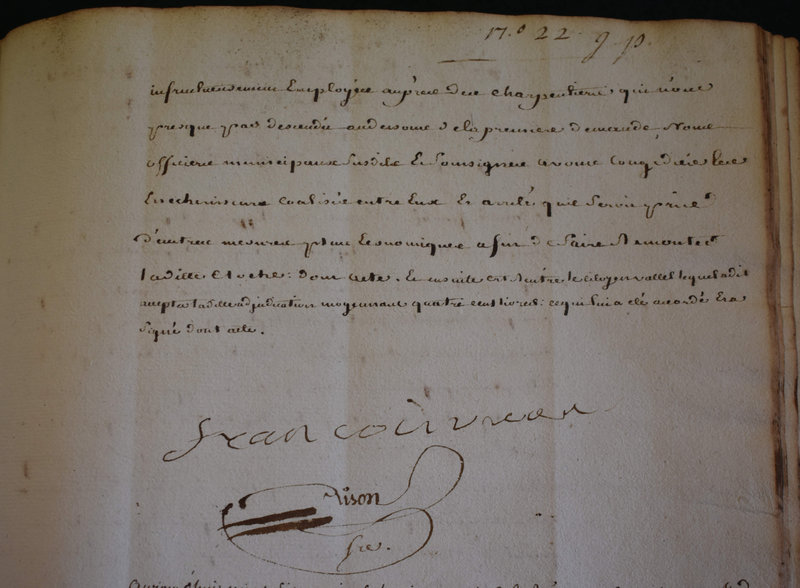 17.° 22 9 p.
infructueusement Employée auprès des charpentiers qui n'ont
presque pas descendu au dessous de la premiere demande, Nous
officiers municipaux susdits Et soussignés avons Congédié les
Encherisseurs Coalisés entre Eux Et arrêté qu'il seroit pris
D'autres mesures plus Economiques afin de faire Remonter
Ladite Cloche: dont acte. Et ensuite est Rentré le citoyen vallet lequel a dit
accepter ladite adjudication moyennant quatre cent livres: ce qui lui a été accordé Et a
signé dont acte.
Rison